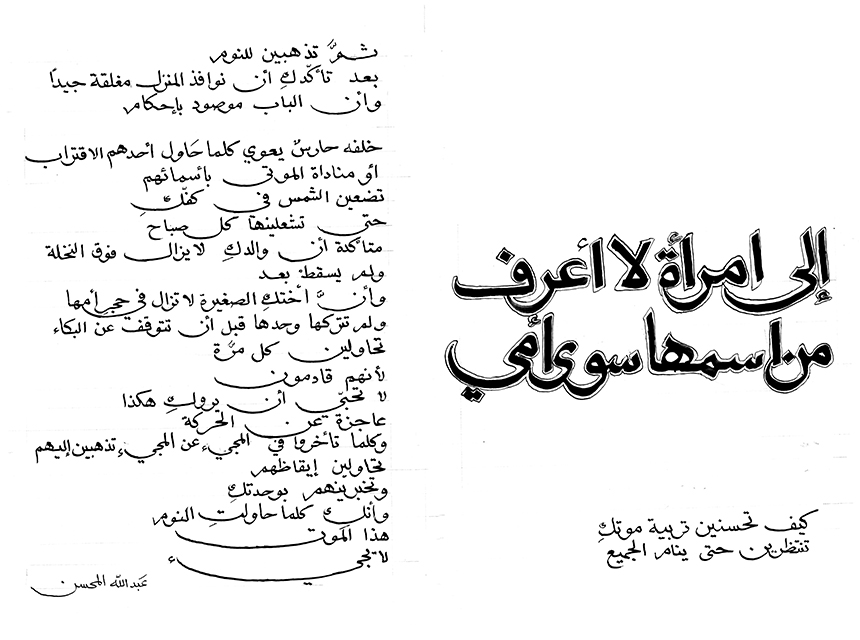 إلى امرأة لا أعرف
من اسمها سوى أمي
كيف تحسنين تربية موتكِ
تنتظرين حتى ينام الجميع
ثمَّ تذهبين للنوم
بعد تأكّدكِ أن نوافذ المنزل مغلقة جيداً
وأن الباب موصود بإحكام
خلفه حارسٌ يعوي كلما حَاول أحدهم الاقتراب
أو مناداة الموتى بأسمائهم
تضعين الشمس في كفّكِ
حتى تشعلينها كل صباح
متأكدة أن والدكِ لايزال فوق النخلة
ولم يسقط بعد
وأنَّ أختكِ الصغيرة لاتزال في حجر أمها
ولم تتركها وحدها قبل أن تتوقف عن البكاء
تحاولين كل مرَّة
لأنهم قادمون
لا تحبّي أن يروكِ هكذا
عاجزة عن الحركة
وكلما تأخروا في المجيء عن المجيء تذهبين إليهم
تحاولين إيقاظهم
وتخبرينهم بوحدتكِ
وأنكِ كلما حاولتِ النوم
هذا المَوت
لايجيء
عَبدالله المحسن